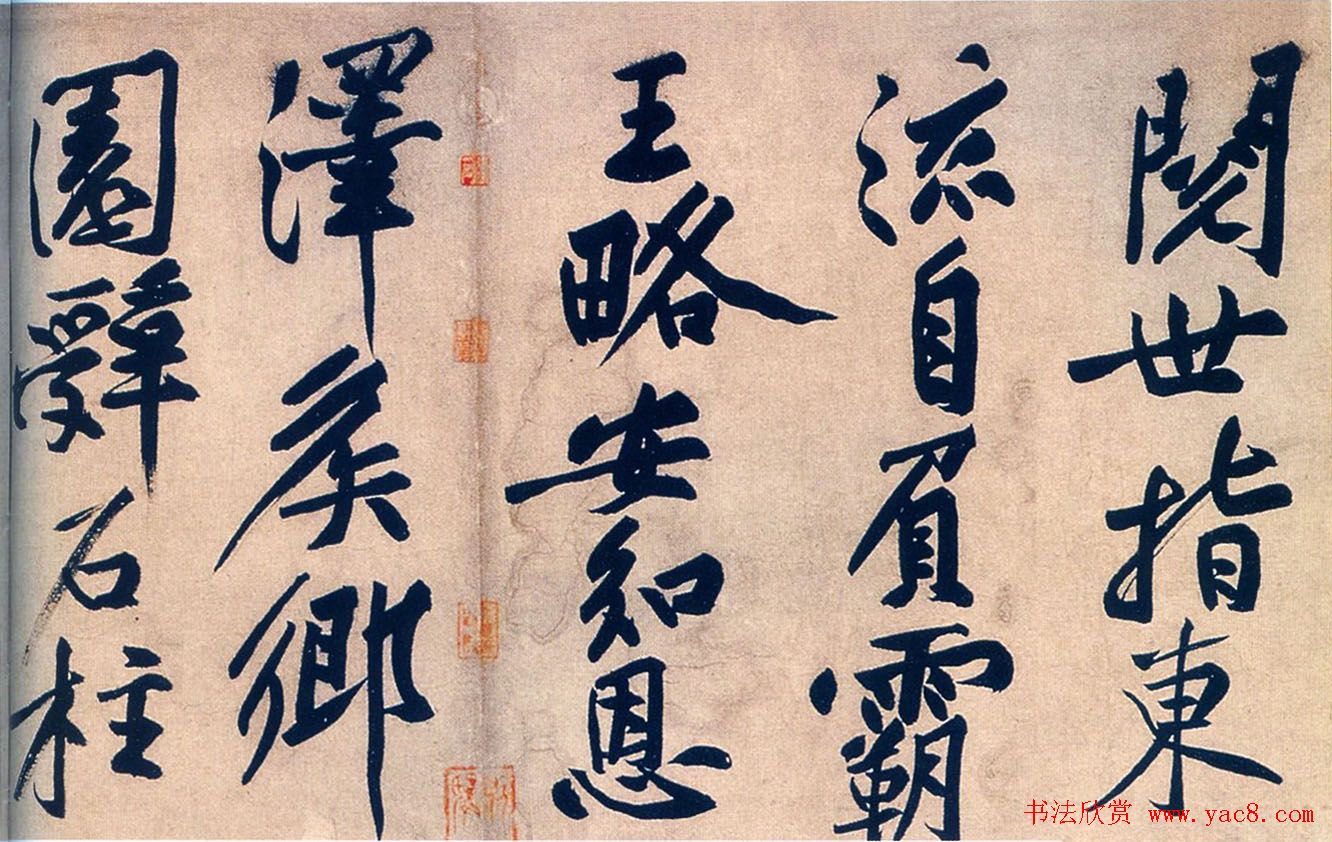 閱世指東
流自負霸
王略安知恩
澤侯鄉
園辭石柱
书法欣赏 www.yac8.com